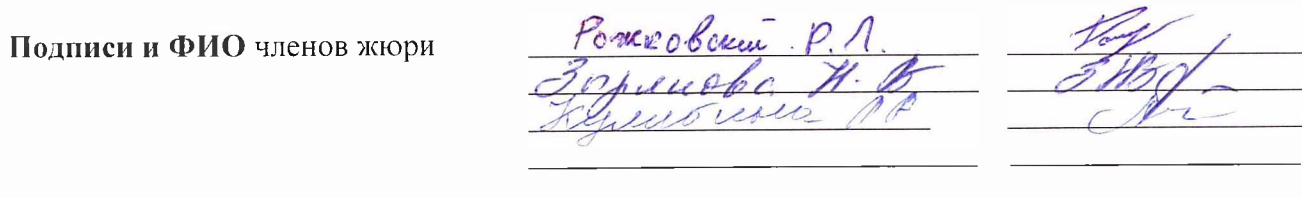 Подписи и ФИО членов жюри
Рожковский Р.Л.
Зырянова Н. Б
Кулибина